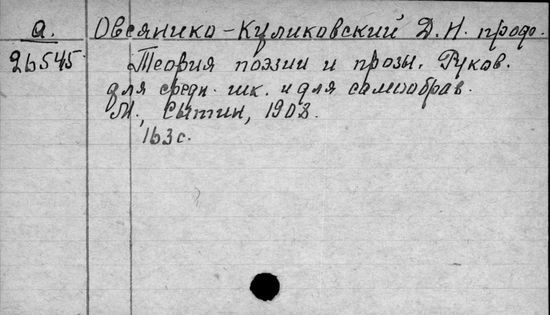 а. Овсянико-Куликовский Д. Н. проф.
26545 Теория поэзии и прозы. Руков.
для средн. шк. и для самообраз.
М., Сытин, 1908.
163 с.